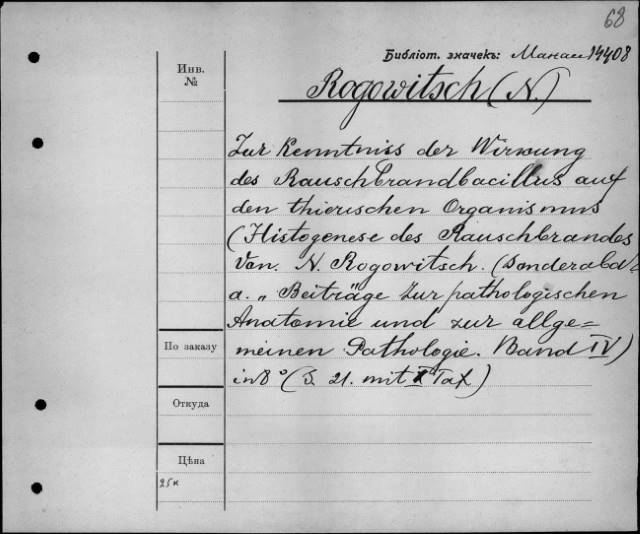 68
Библіот. значекъ: Манас 14408
Инв. №
Rogowitsch (N)
Zur Kenntniss der Wirkung
des Rauschbrandbacillus auf
den thierischen Organismus
(Histogenese des Rauschbrandes
Von. N. Rogowitsch. (Sonderabd.
a. „ Beiträge zur pathologischen
Anatomie und zur allge=
meinen Pathologie. Band IV)
in 8° (S. 21. mit Taf)
По заказу
Откуда
Цѣна
25к